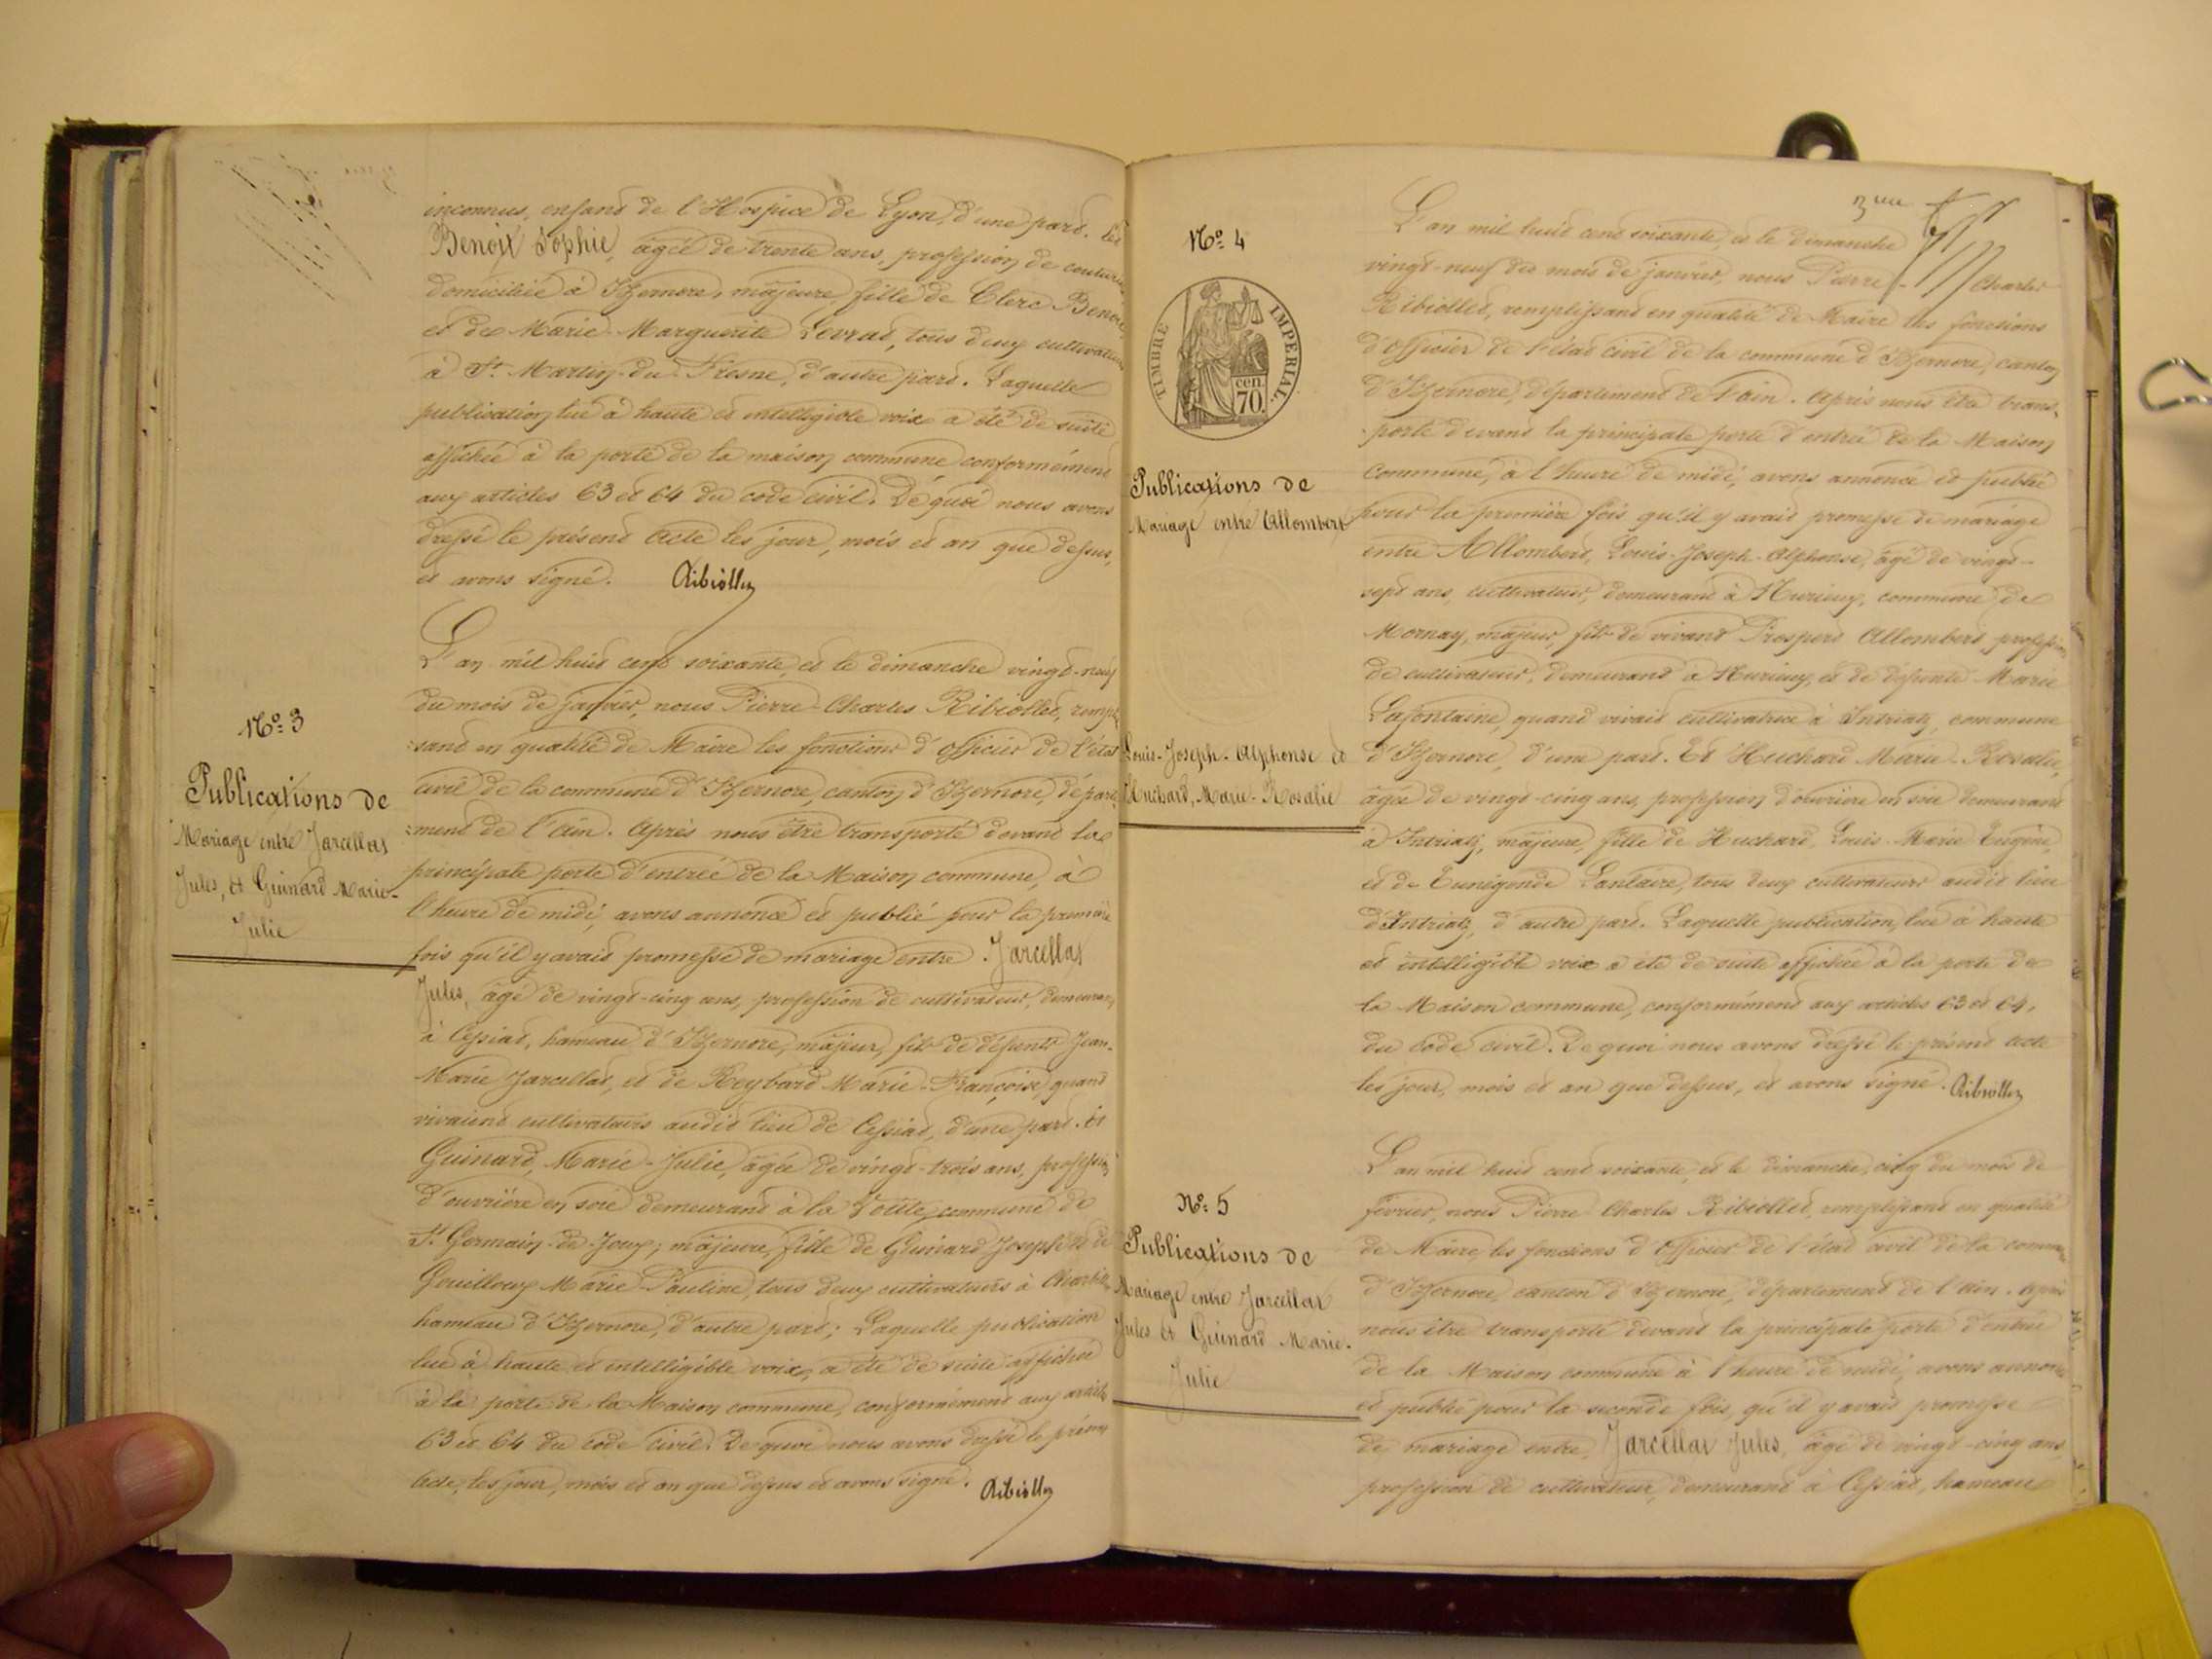 inconnus, enfant de l'Hospice de Lyon, d'une part. Et
Benoit Sophie, âgée de trente ans, profession de couturière,
domiciliée à Izernore, majeure, fille de Clerc Benoit,
et de Marie-Marguerite Levrat, tous deux cultivateurs
à St. Martin-du-Fresne, d'autre part. Laquelle
publication lue à haute et intelligible voix a été de suite
affichée à la porte de la maison commune conformément
aux articles 63 et 64 du code civil. De quoi nous avons
dressé le présent acte les jour, mois et an que dessus,
et avons signé. Ribiollet
No. 3
Publications de
Mariage entre Jarcellat
Jules, et Guinard Marie-
Julie
L'an mil huit cent soixante, et le dimanche vingt-neuf
du mois de janvier, nous Pierre-Charles Ribiollet, remplis
:sant en qualité de Maire les fonctions d'officier de l'état
civil de la commune d'Izernore, canton d'Izernore, départe
:ment de l'Ain. Après nous être transporté devant la
principale porte d'entrée de la Maison commune, à
l'heure de midi, avons annoncé et publié pour la première
fois qu'il y avait promesse de mariage entre. Jarcellat
Jules, âgé de vingt-cinq ans, profession de cultivateur, demeurant
à Cessiat, hameau d'Izernore, majeur, fils de défunts Jean-
Marie Jarcellat, et de Reybard Marie-Françoise, quand
vivaient cultivateurs audit lieu de Cessiat, d'une part. Et
Guinard, Marie-Julie, âgée de vingt-trois ans, profession
d'ouvrière en soie demeurant à la Voute, commune de
St. Germain-de-Joux; majeure, fille de Guinard Joseph et de
Gouilloux Marie-Pauline, tous deux cultivateurs à
hameau d'Izernore, d'autre part; Laquelle publication
lue à haute et intelligible voix, a été de suite affichée
à la porte de la Maison commune, conformément aux articles
63 et 64 du code civil. De quoi nous avons dressé le présent
acte, les jour, mois et an que dessus et avons signé. Ribiollet
3me
No. 4
TIMBRE IMPERIAL.
cen.
70.
Publications de
Mariage entre Allombert
Louis-Joseph-Alphonse et
Huchard, Marie-Rosalie
L'an mil huit cent soixante, et le dimanche
vingt-neuf du mois de janvier, nous Pierre-Charles
Ribiollet, remplissant en qualité de Maire les fonctions
d'officier de l'état civil de la commune d'Izernore, canton
d'Izernore, département de l'ain. Après nous être trans-
-porté devant la principale porte d'entrée de la Maison
Commune, à l'heure de midi, avons annoncé et publié
pour la première fois qu'il y avait promesse de mariage
entre Allombert, Louis-Joseph-Alphonse, âgé de vingt-
sept ans, cultivateur, demeurant à commune de
Mornay, majeur, fils de vivant Prosper Allombert, profession
de cultivateur, demeurant à et de défunte Marie
Lafontaine, quand vivait cultivatrice à Intriatz, commune
d'Izernore, d'une part. Et Huchard Marie-Rosalie,
âgée de vingt-cinq ans, profession d'ouvrière en soie demeurant
à Intriatz, majeure, fille de Huchard, Louis-Marie Eugène,
et de Cunégonde tous deux cultivateurs audit lieu
d'Intriatz, d'autre part. Laquelle publication, lue à haute
et intelligible voix a été de suite affichée à la porte de
la Maison commune, conformément aux articles 63 et 64.
du code civil. De quoi nous avons dressé le présent acte
les jour, mois et an que dessus, et avons signé. Ribiollet
No. 5
Publications de
Mariage entre Jarcellat
Jules et Guinard Marie-
Julie
L'an mil huit cent soixante, et le dimanche, cinq du mois de
février, nous Pierre-Charles Ribiollet, remplissant en qualité
de Maire, les fonctions d'officier de l'état civil de la commune
d'Izernore, canton d'Izernore, département de l'ain. Après
nous être transporté devant la principale porte d'entrée
de la Maison commune à l'heure de midi, avons annoncé
et publié pour la seconde fois, qu'il y avait promesse
de mariage entre, Jarcellat Jules, âgé de vingt-cinq ans,
profession de cultivateur, demeurant à Cessiat, hameau